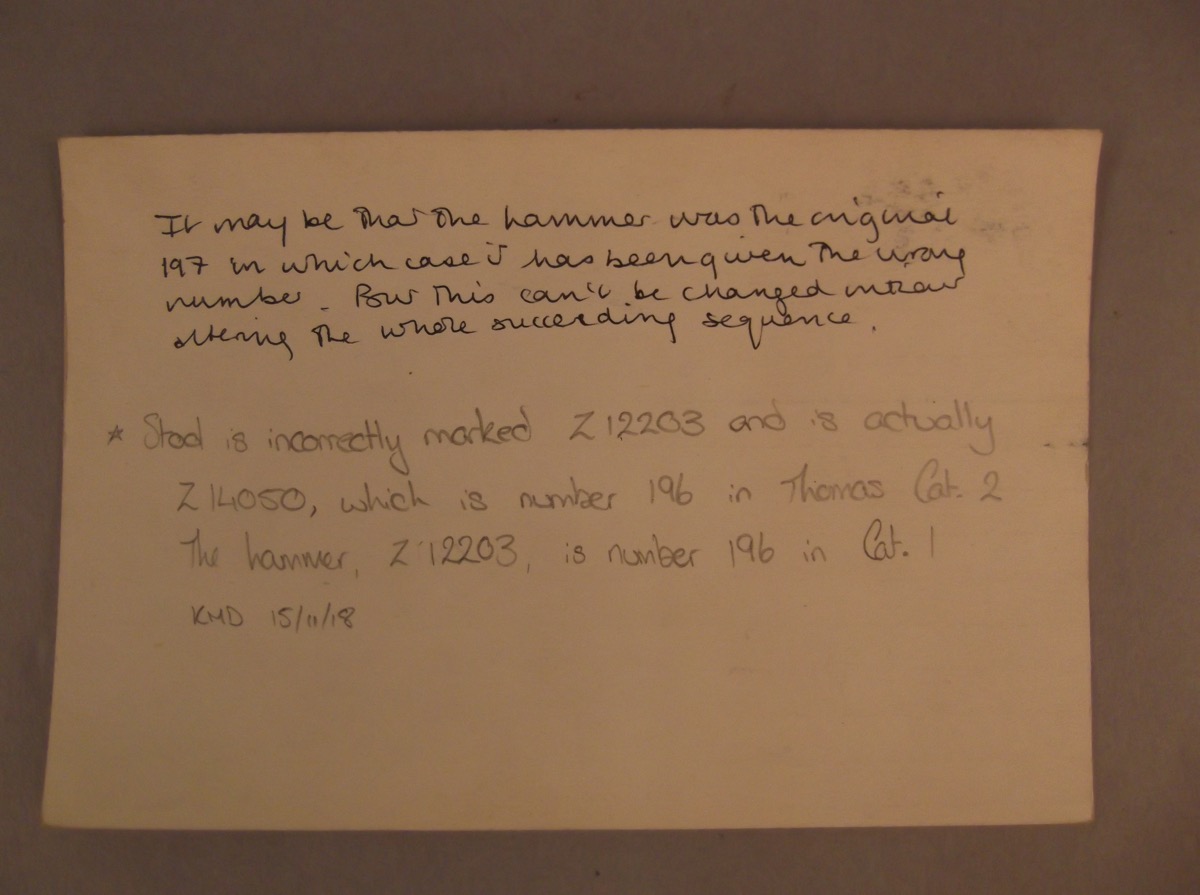 It may be that the hammer was the original
197 in which case it has been given the wrong
number. But this can't be changed without
altering the whole succeeding sequence.
* Stool is incorrectly marked Z 12203 and is actually
Z 14050, which is number 196 in Thomas Cat. 2
The hammer, Z 12203, is number 196 in Cat. 1
KMD 15/11/18